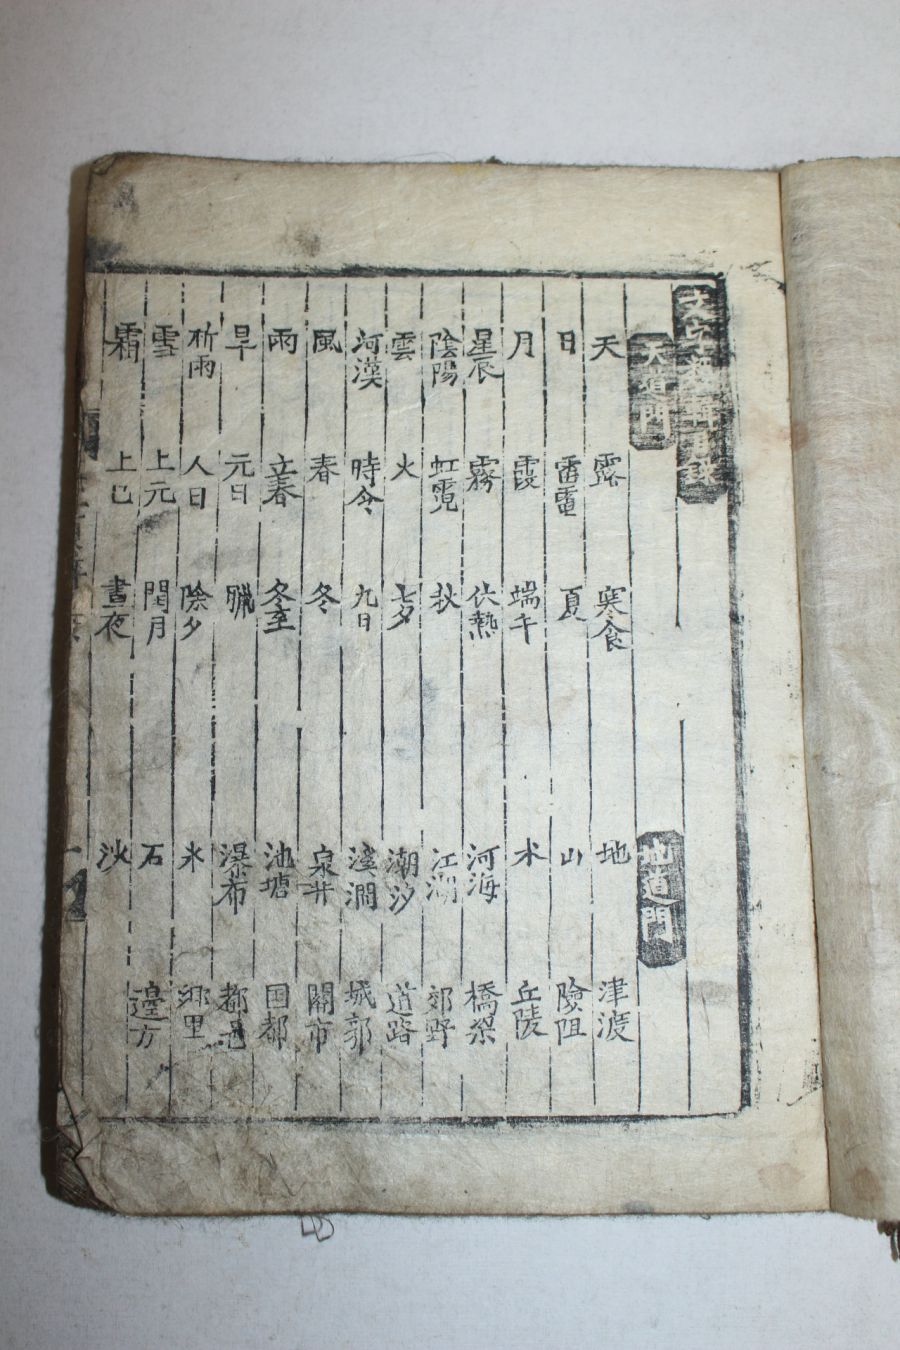 文字類輯目錄
天道門
地道門
天 露 寒食 地 津渡
日 雷電 夏 山 險阻
月 霞 端午 水 丘陵
星辰 霧 伏熱 河海 橋梁
陰陽 虹霓 秋 江湖 郊野
雲 火 七夕 潮汐 道路
河漢 時令 九日 溪澗 城郭
風 春 冬 泉井 關市
雨 立春 冬至 池塘 国都
旱 元日 臘 瀑布 都邑
祈雨 人日 除夕 氷 鄉里
雪 上元 閏月 石 邊方
霜 上巳 晝夜 沙